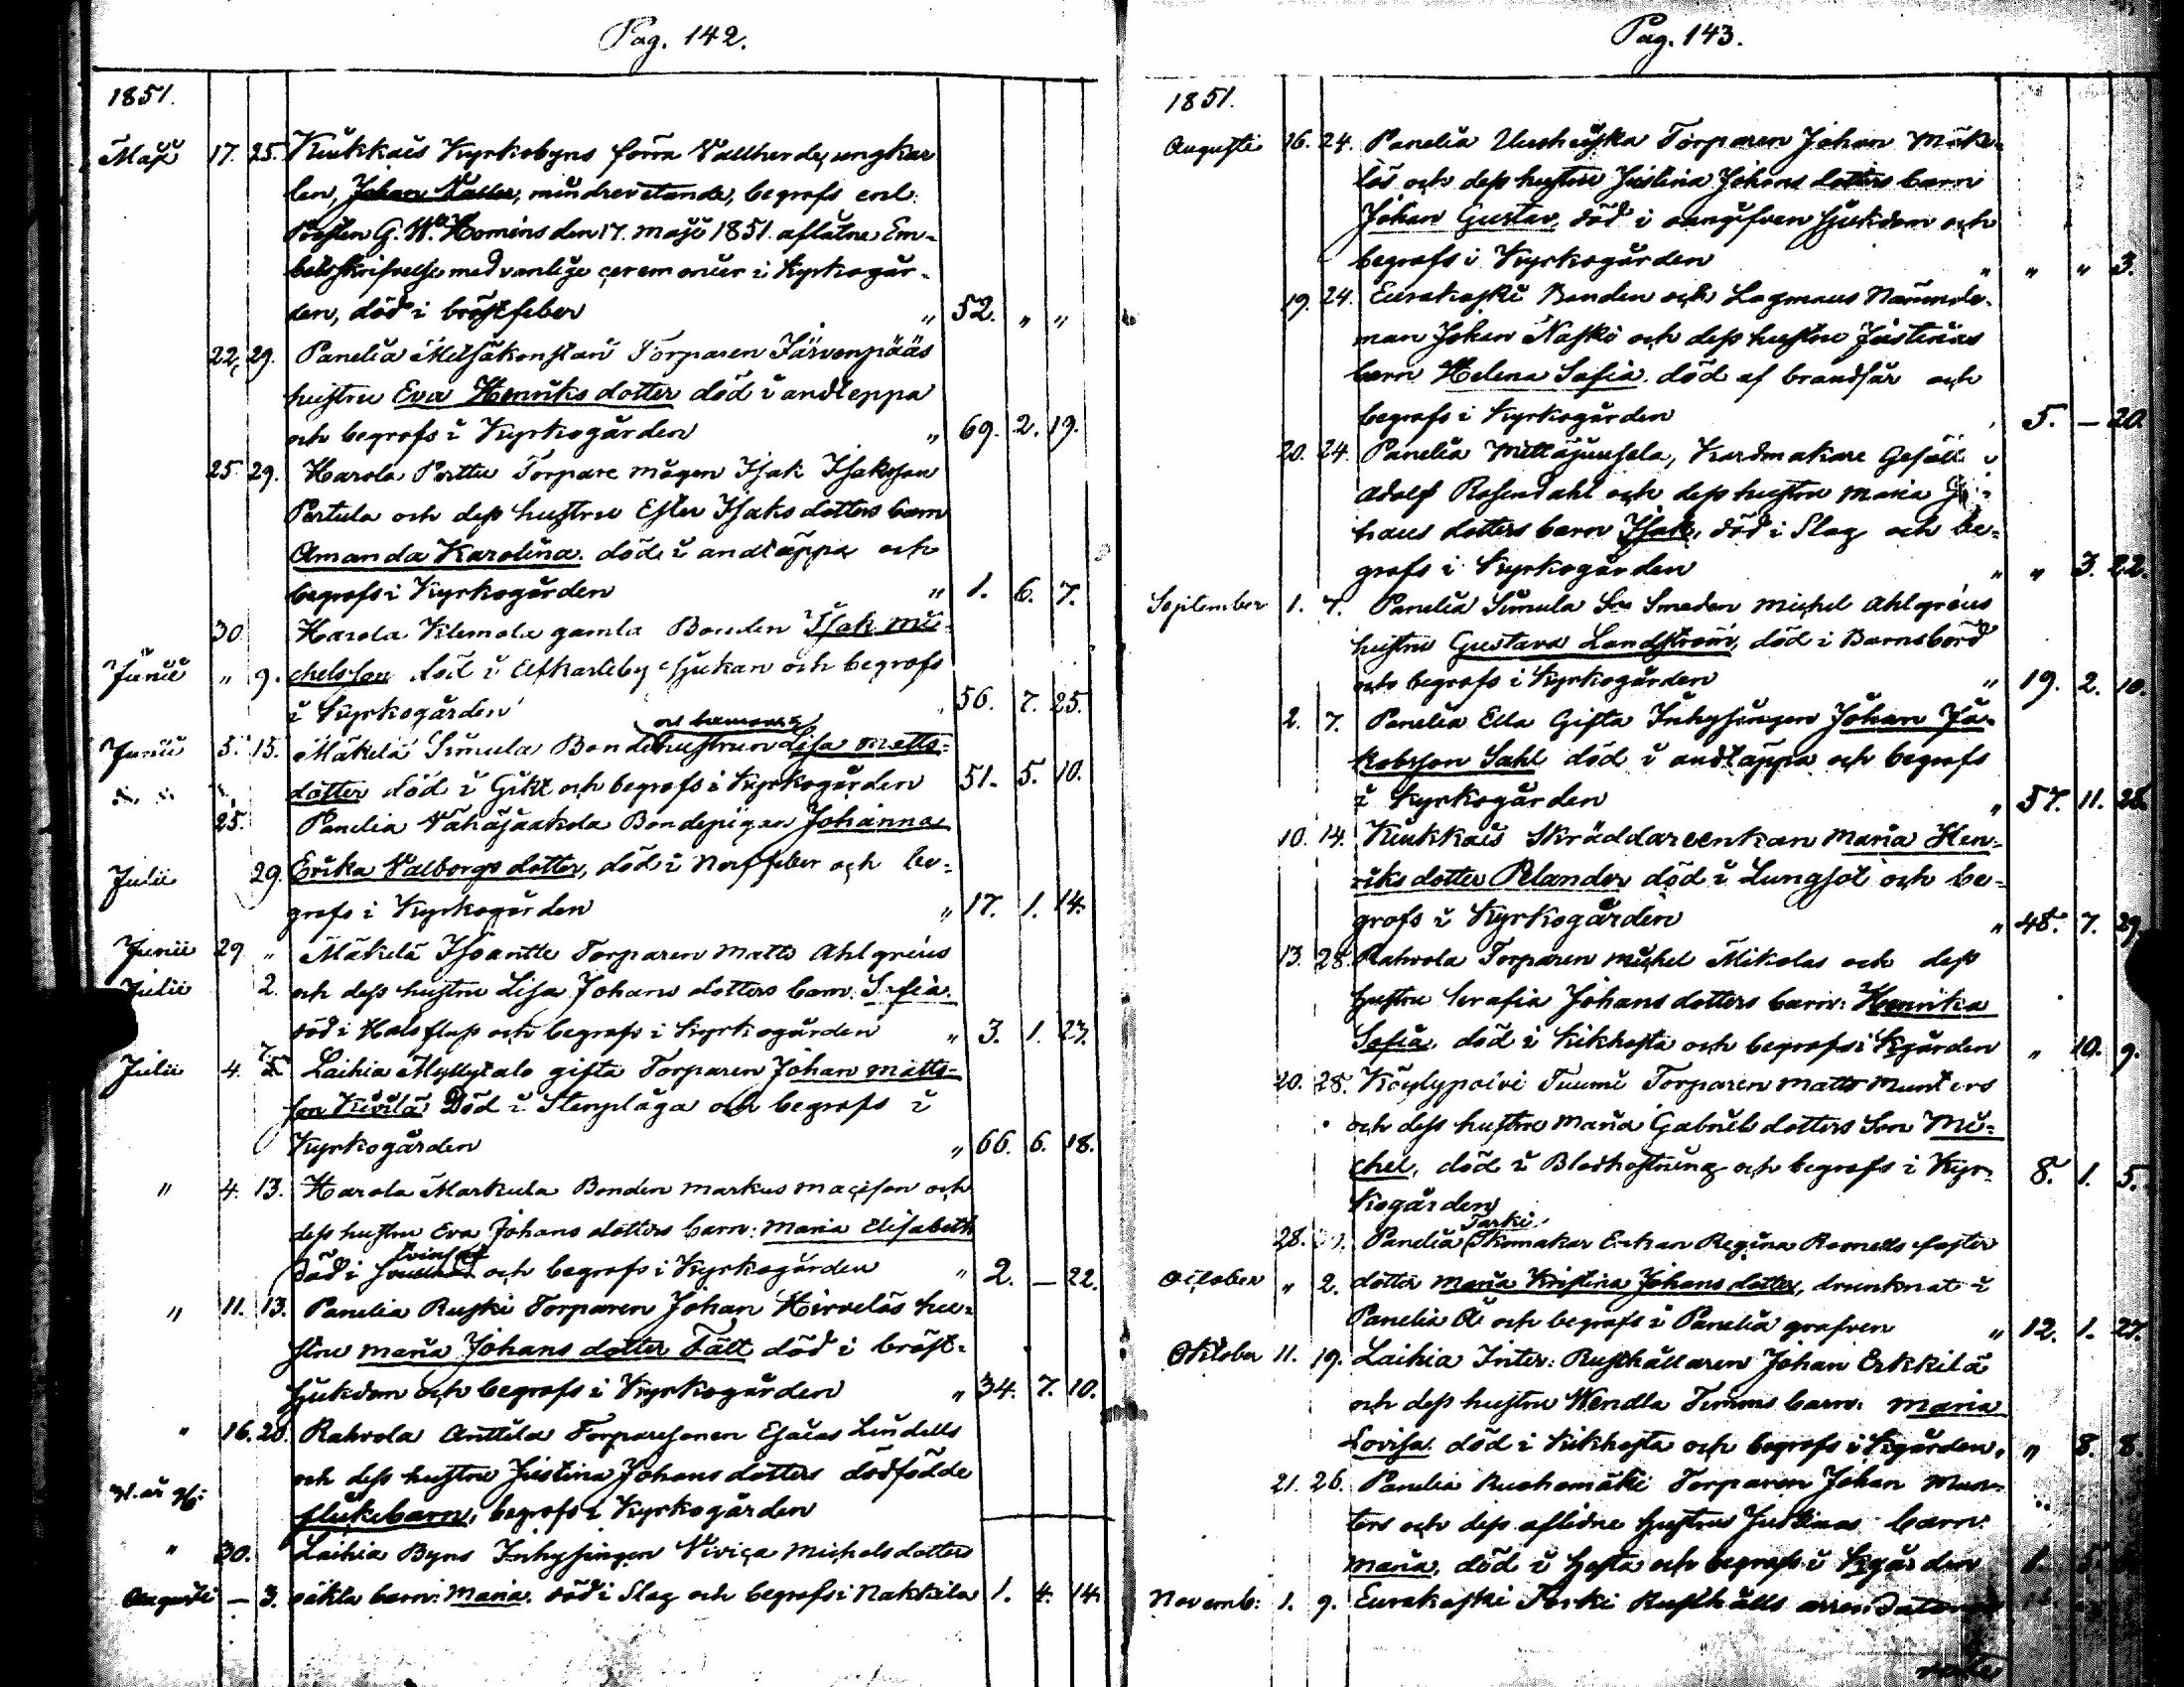 Pag. 142.
1851.
Maji 17. 25. Kiukkais Kyrkobyns förra Vallherde, ungkar
len, Johan Valler, mindre vetande, begrofs enl.
Prosten G. W. Homéns den 17. Maji 1851. aflåtne Em-
betsskrifvelse med vanlige ceremonier i Kyrkogår-
den, död i bröstfeber " 52. " "
22. 29. Panelia Metsäkonstari Torparen Järvenpääs
hustru Eva Henriks dotter död i andteppa
och begrofs i Kyrkogården " 69. 2. 19.
25. 29. Harola Perttu Torpare mågen Isak Isaksson
Pertula och dess hustru Ester Isaks dotters barn
Amanda Karolina. död i andtäppa och
begrofs i Kyrkogården " 1. 6. 7.
30. Harola Klemola gamla Bonden Isak Mi-
Junii " 9. chelsson död i Elfkarleby sjukan och begrofs
i Kyrkogården " 56. 7. 25.
Junii 5. 15. Mäkelä Simula Bondehustrun Lisa Matts-
dotter död i Gikt och begrofs i Kyrkogården 51. 5. 10.
25. Panelia Vähäjaakola Bondepigan Johanna
Julii 29. Erika Valborgs dotter, död i Nerffeber och be-
grofs i Kyrkogården " 17. 1. 14.
Junii 29 " Mäkelä Isoantte Torparen Matts Ahlgréns
Julii 2. och dess hustru Lisa Johans dotters barn: Sofia.
död i Halsfluss och begrofs i Kyrkogården " 3. 1. 23.
Julii 4. 7. Laihia Myllytalo gifta Torparen Johan Matts-
son Kivilä Död i Stenplåga och begrofs i
Kyrkogården " 66. 6. 18.
" 4. 13. Harola Markula Bonden Markus Macison och
dess hustru Eva Johans dotters barn: Maria Elisabeth
död i och begrofs i Kyrkogården " 2. — 22.
" 11. 13. Panelia Ruski Torparen Johan Hirveläs hu-
stru Maria Johans dotter Tätt död i bröst-
sjukdom och begrofs i Kyrkogården " 34. 7. 10.
" 16. 20. Rahvola Anttila Torparesonen Esaias Lindells
och dess hustru Justina Johans dotters dödfödde
flickebarn, begrofs i Kyrkogården
" 30. Laihia Byns Inhysingen Viviça Michels dotters
Augusti — 3. oäkta barn: Maria. död i Slag och begrofs i Nakkila 1. 4. 14.
Pag. 143.
1851.
Augusti 16. 24. Panelia Torparen Johan Mäke-
läs och dess hustru Justina Johans dotters barn
Johan Gustav, död i oangifven sjukdom och
begrofs i Kyrkogården " " " 3.
19. 24. Eurakoski Bonden och Lagmans Nämnde-
man Johan Naski och dess hustru Justinas
barn Helena Sofia. död af brandsår och
begrofs i Kyrkogården 5. — 20.
20. 24. Panelia Mellajuusela, Kardmakare Gesäll
Adolf Rosendahl och dess hustru Maria
hans dotters barn Isak, död i Slag och be-
grofs i Kyrkogården " " 3. 22.
September 1. 7. Panelia Simula Smeden Michel Ahlgréns
hustru Gustava Landström, död i Barnsbörd
och begrofs i Kyrkogården " 19. 2. 10.
2. 7. Panelia Eila Gifta Inhysingen Johan Ja-
kobsson Sahl död i andtäppa och begrofs
i Kyrkogården " 57. 11. 28.
10. 14. Kiukkais Skräddareenkan Maria Hen-
riks dotter Pelander död i Lungsot och be-
grofs i Kyrkogården " 48. 7. 29.
13. 28. Rahvola Torparen Michel Mikolas och dess
hustru Serafia Johans dotters barn: Henrika
Sofia. död i Kikhosta och begrofs i Kgården " 10. 9.
20. 28. Köylypolvi Tuumi Torparen Matts Munters
och dess hustru Maria Gabriels dotters Son Mi-
chel, död i Blodhostning och begrofs i Kyr- 8. 1. 5.
kogården
28. Panelia Torki Skomakar Enkan Regina Roanells foster
October " 2. dotter Maria Kristina Johans dotter, drunknat i
Panelia Å och begrofs i Panelia grafven " 12. 1. 27.
Oktober 11. 19. Laihia Inter: Rusthållaren Johan Erkkilä
och dess hustru Wendla Timms barn: Maria
Lovisa. död i Kikhosta och begrofs i Kgården, " 8. 8.
21. 26. Panelia Ruohomäki Torparen Johan Mun-
ters och dess aflidne hustru Justinas barn:
Maria, död i hosta och begrofs i Kgården
Novemb: 1. 9. Eurakoski Torki Rusthålls